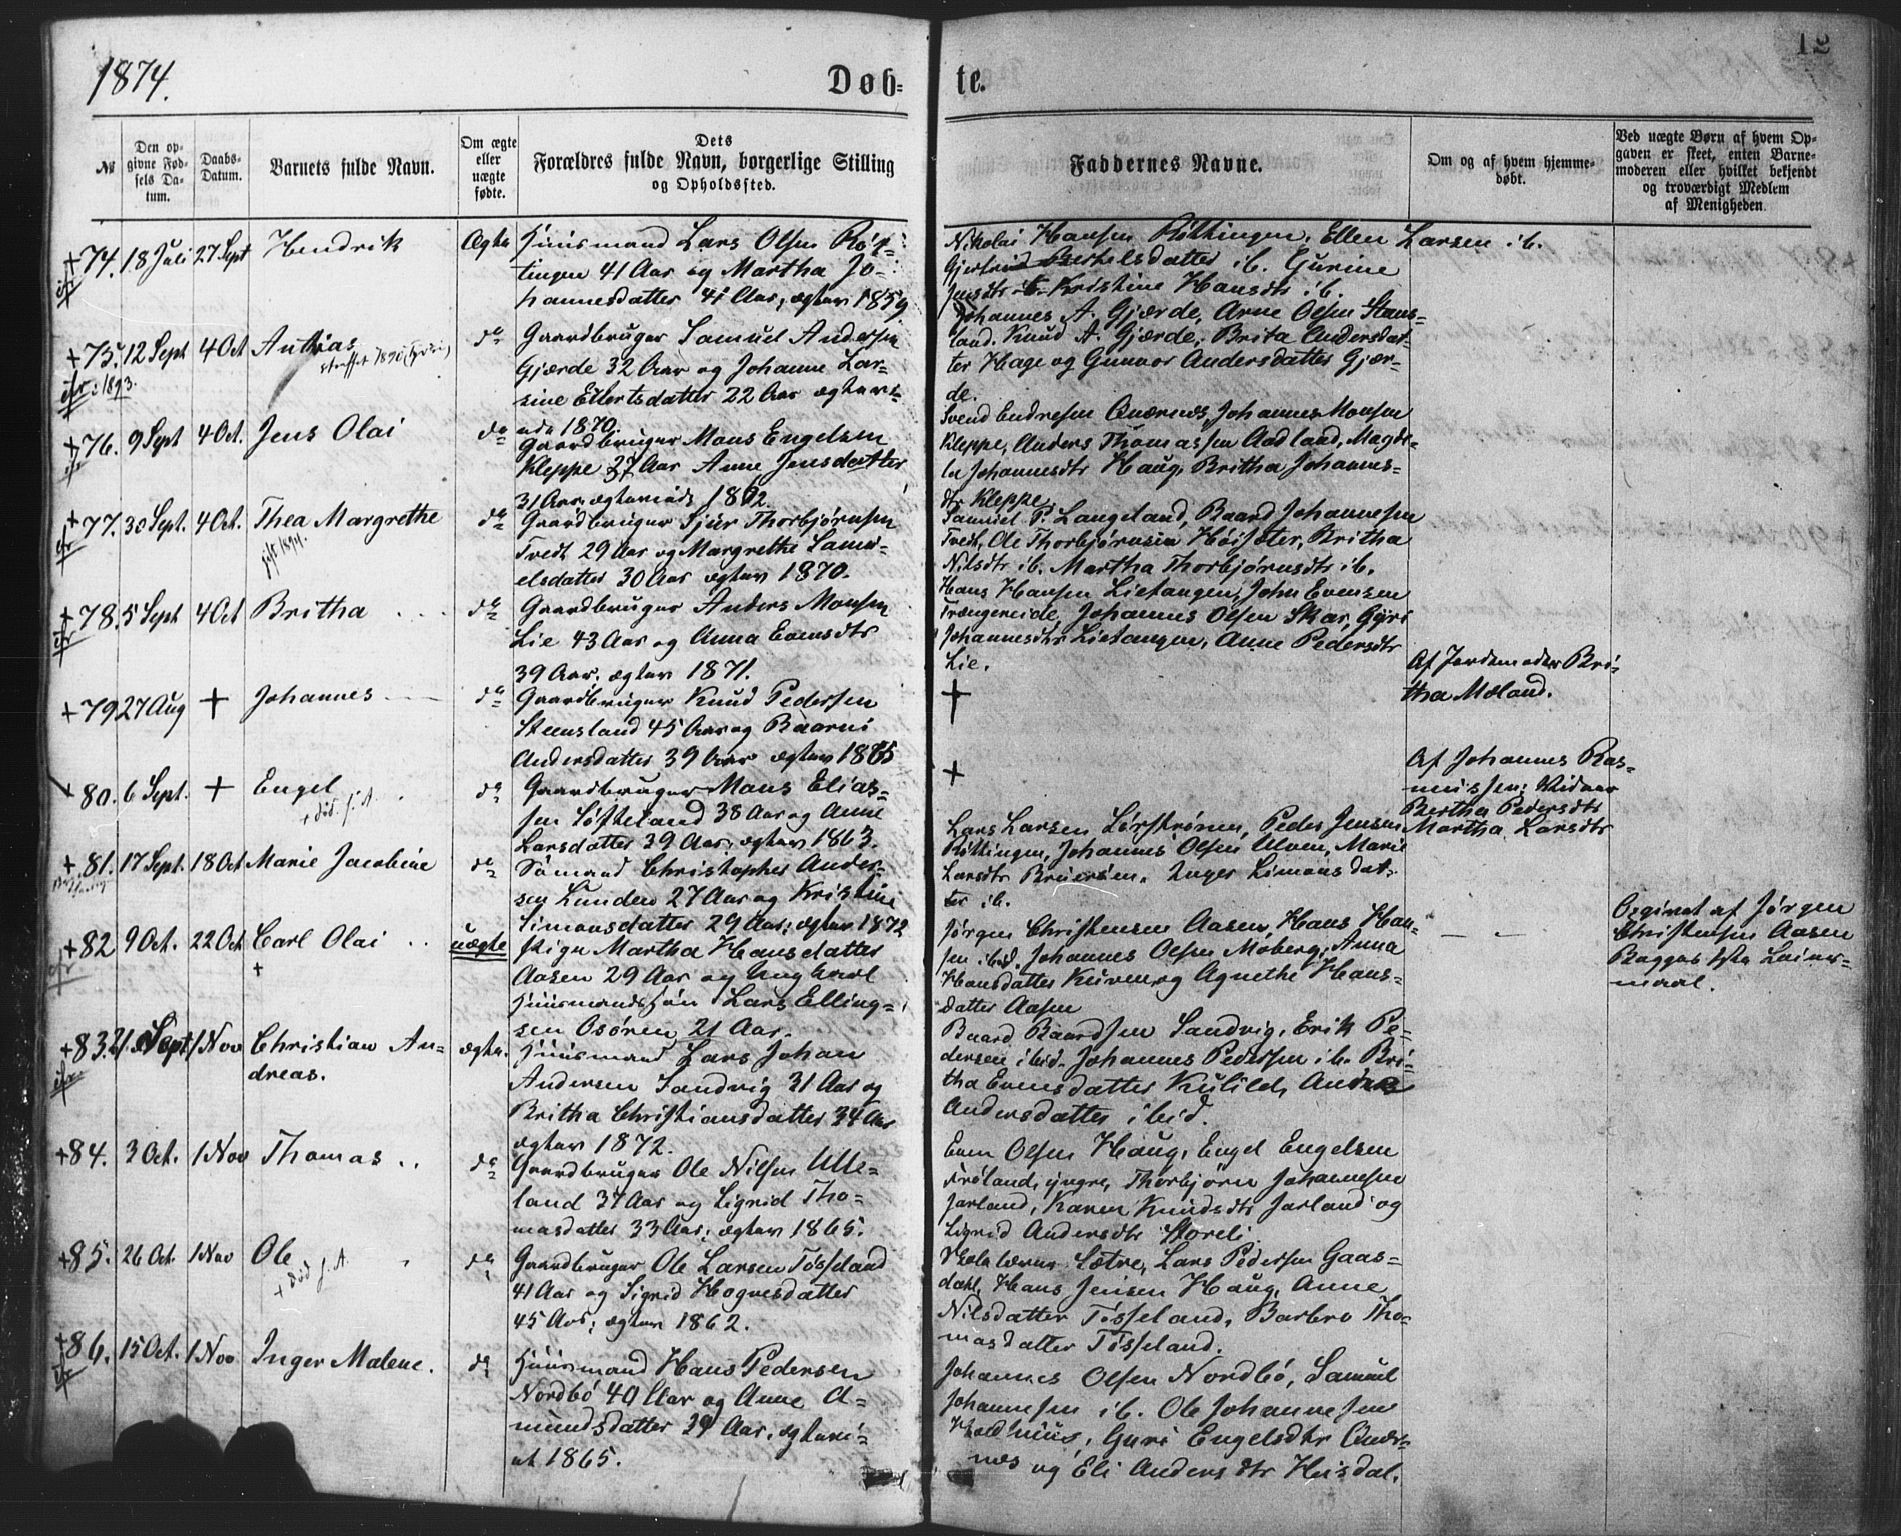 1874.
Døb=
te.
12
№
Den op-
givne Fød-
sels Da-
tum.
Daabs-
Datum.
Barnets fulde Navn.
Om ægte
eller
uægte
fødte.
Dets
Forældres fulde Navn, borgerlige Stilling
og Opholdssted.
Faddernes Navne.
Om og af hvem hjemme-
døbt.
Ved uægte Børn af hvem Op-
gaven er skeet, enten Barne-
moderen eller hvilket bekjendt
og troværdigt Medlem
af Menigheden.
+74. 18 Juli 27 Sept Hendrik Ægte Huusmand Lars Olsen Røt-
tingen 41 Aar og Martha Jo-
hannesdatter 41 Aar, ægtev 1859
Nikolai Hansen Røttingen, Ellen Larsen ib.
Gjertrud Berhelsdatter ib. Gurine
Jensdtr ib. Kristine Hansdtr ib.
+75. 12 Sept 4 Oct Anthias do Gaardbruger Samuel Andersen
Gjærde 32 Aar og Johanne Lar-
sine Eilertsdatter 22 Aar ægtevi-
ede 1870.
1893.
Johannes A. Gjærde, Arne Olsen Steens-
land. Knud A. Gjærde, Brita Andersdat-
ter Hage og Gunvor Andersdatter Gjær-
de.
+76. 9 Sept 4 Oct. Jens Olai do Gaardbruger Mons Engelsen
Kleppe 37 Aar Anne Jensdatter
31 Aar, ægteviede 1872.
Svend Endresen Qværnes, Johannes Monsen
Kleppe, Anders Thomassen Aadland, Magde-
la Johannesdtr Haug, Britha Johannes-
dtr Kleppe
+77. 30 Sept. 4 Oct. Thea Margrethe do Gaardbruger Sjur Thorbjørnsen
gift 1894.
Tvedt 29 Aar og Margrethe Samu-
elsdatter 30 Aar ægtev 1870.
Samuel P. Langeland, Baard Johannesen
Tvedt, Ole Thorbjørnsen Høisæter, Britha
Nilsdtr ib. Martha Thorbjørnsdtr ib.
+78. 5 Sept 4 Oct Britha do Gaardbruger Anders Monsen
Lie 43 Aar og Anna Evensdtr
39 Aar, ægtev 1871.
Hans Hansen Lietangen, John Evensen
Trængereide, Johannes Olsen Skar, Gyri
Johannesdtr Lietangen, Anne Pedersdtr
Lie.
+79 27 Aug + Johannes do Gaardbruger Knud Pedersen
Steensland 45 Aar og Baarni
Andersdatter 39 Aar ægtev 1865
+
Af Jordemoder Bri-
tha Mæland.
80. 6 Sept. + Engel do Gaardbruger Mons Elias-
+ død f. A.
sen Søfteland 38 Aar og Anne
Larsdatter 39 Aar, ægtev 1863.
+
Af Johannes Ras-
mussen; Vidner
Bertha Pedersdtr
Martha Larsdtr
+81. 17 Sept. 18 Oct Marie Jacobine do Sømand Christopher Ander-
sen Lunden 27 Aar og Kristine
Simonsdatter 29 Aar; ægtev 1872
Lars Larsen Sørstrønen, Peder Jensen
Røttingen, Johannes Olsen Ulven, Marie
Larsdtr Bruerøen. Inger Simonsdat-
ter ib.
+82 9 Oct. 22 Oct Carl Olai uægte Pige Martha Hansdatter
+
Aasen 29 Aar og Ungkarl
Huusmandssøn Lars Elling-
sen Osøren 21 Aar.
Jørgen Christensen Aasen, Hans Han-
sen ibid. Johannes Olsen Moberg, Anna
Hansdatter Kuven og Agnethe Hans-
datter Aasen
Opgivet af Jørgen
Christensen Aasen
Begges 1ste Leier-
maal.
+83. 21 Sept. 1 Nov Christian An- ægte. Huusmand Lars Johan
dreas.
Andersen Sandvig 31 Aar og
Britha Christiansdatter 34 Aar
ægtev 1872.
Baard Baardsen Sandvig, Erik Pe-
dersen ibid. Johannes Pedersen ib. Bri-
tha Evensdatter Kulild,
Andersdatter ibid.
+84. 3 Oct. 1 Nov Thomas do Gaardbruger Ole Nilsen Ulle-
land 37 Aar og Sigrid Tho-
masdatter 33 Aar; ægtev 1865.
Even Olsen Haug, Engel Engelsen
Frøland, yngre, Thorbjørn Johannesen
Jarland, Karen Knudsdtr Jarland og
Sigrid Andersdtr Storeli.
+85. 26 Oct. 1 Nov Ole do Gaardbruger Ole Larsen Tøsseland
+ død f. A.
41 Aar og Sigrid Hognesdatter
45 Aar; ægtev 1862.
Skolelærer Sætre, Lars Pedersen Gaas-
dahl, Hans Jensen Haug, Anne
Nilsdatter Tøsseland, Barbro Tho-
masdatter Tøsseland.
+86. 15 Oct. 1 Nov Inger Malene. do Huusmand Hans Pedersen
Nordbø 40 Aar og Anne A-
mundsdatter 29 Aar, ægtevi-
et 1865.
Johannes Olsen Nordbø, Samuel
Johannesen ib. Ole Johannesen
Holdhuus, Guri Engelsdtr Qvær-
nes og Eli Andersdtr Heisdal.